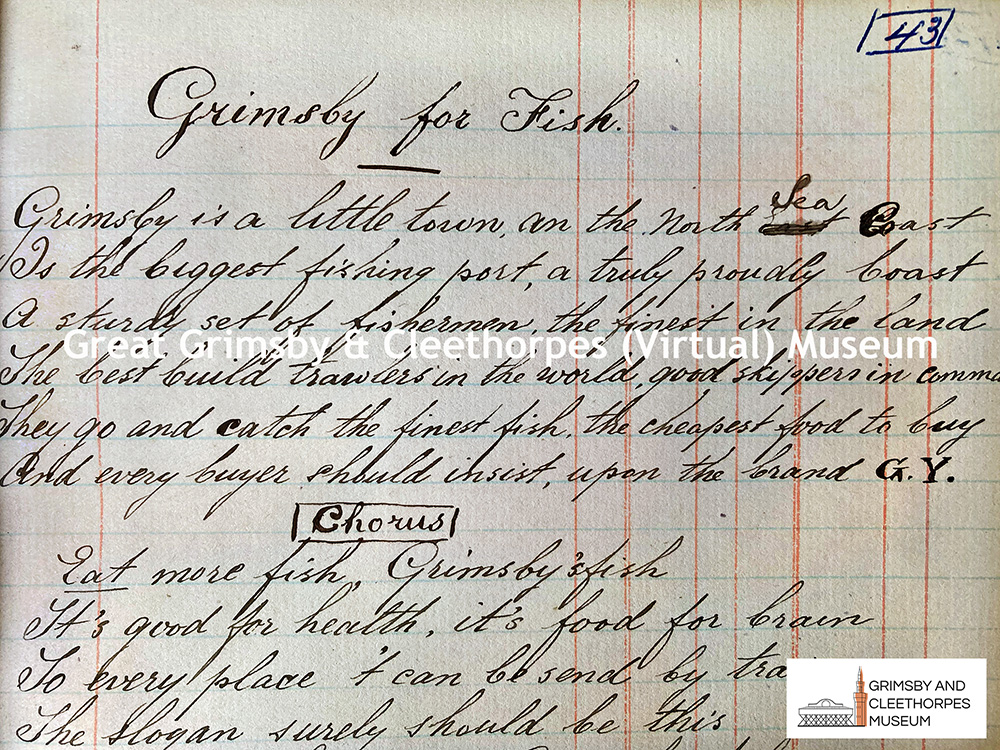 43
Grimsby for Fish.
Grimsby is a little town, an the North Sea Coast
Is the biggest fishing port, a truly proudly boast
A sturdy set of fishermen, the finest in the land
Great Grimsby & Cleethorpes (Virtual) Museum
The best build trawlers in the world, good skippers in comma
They go and catch the finest fish, the cheapest food to buy
And every buyer should insist, upon the brand G.Y.
Chorus
Eat more fish, Grimsby's fish
It's good for health, it's food for brain
To every place 't can be send by tra
The Slogan surely should be this
GRIMSBY AND
CLEETHORPES
MUSEUM